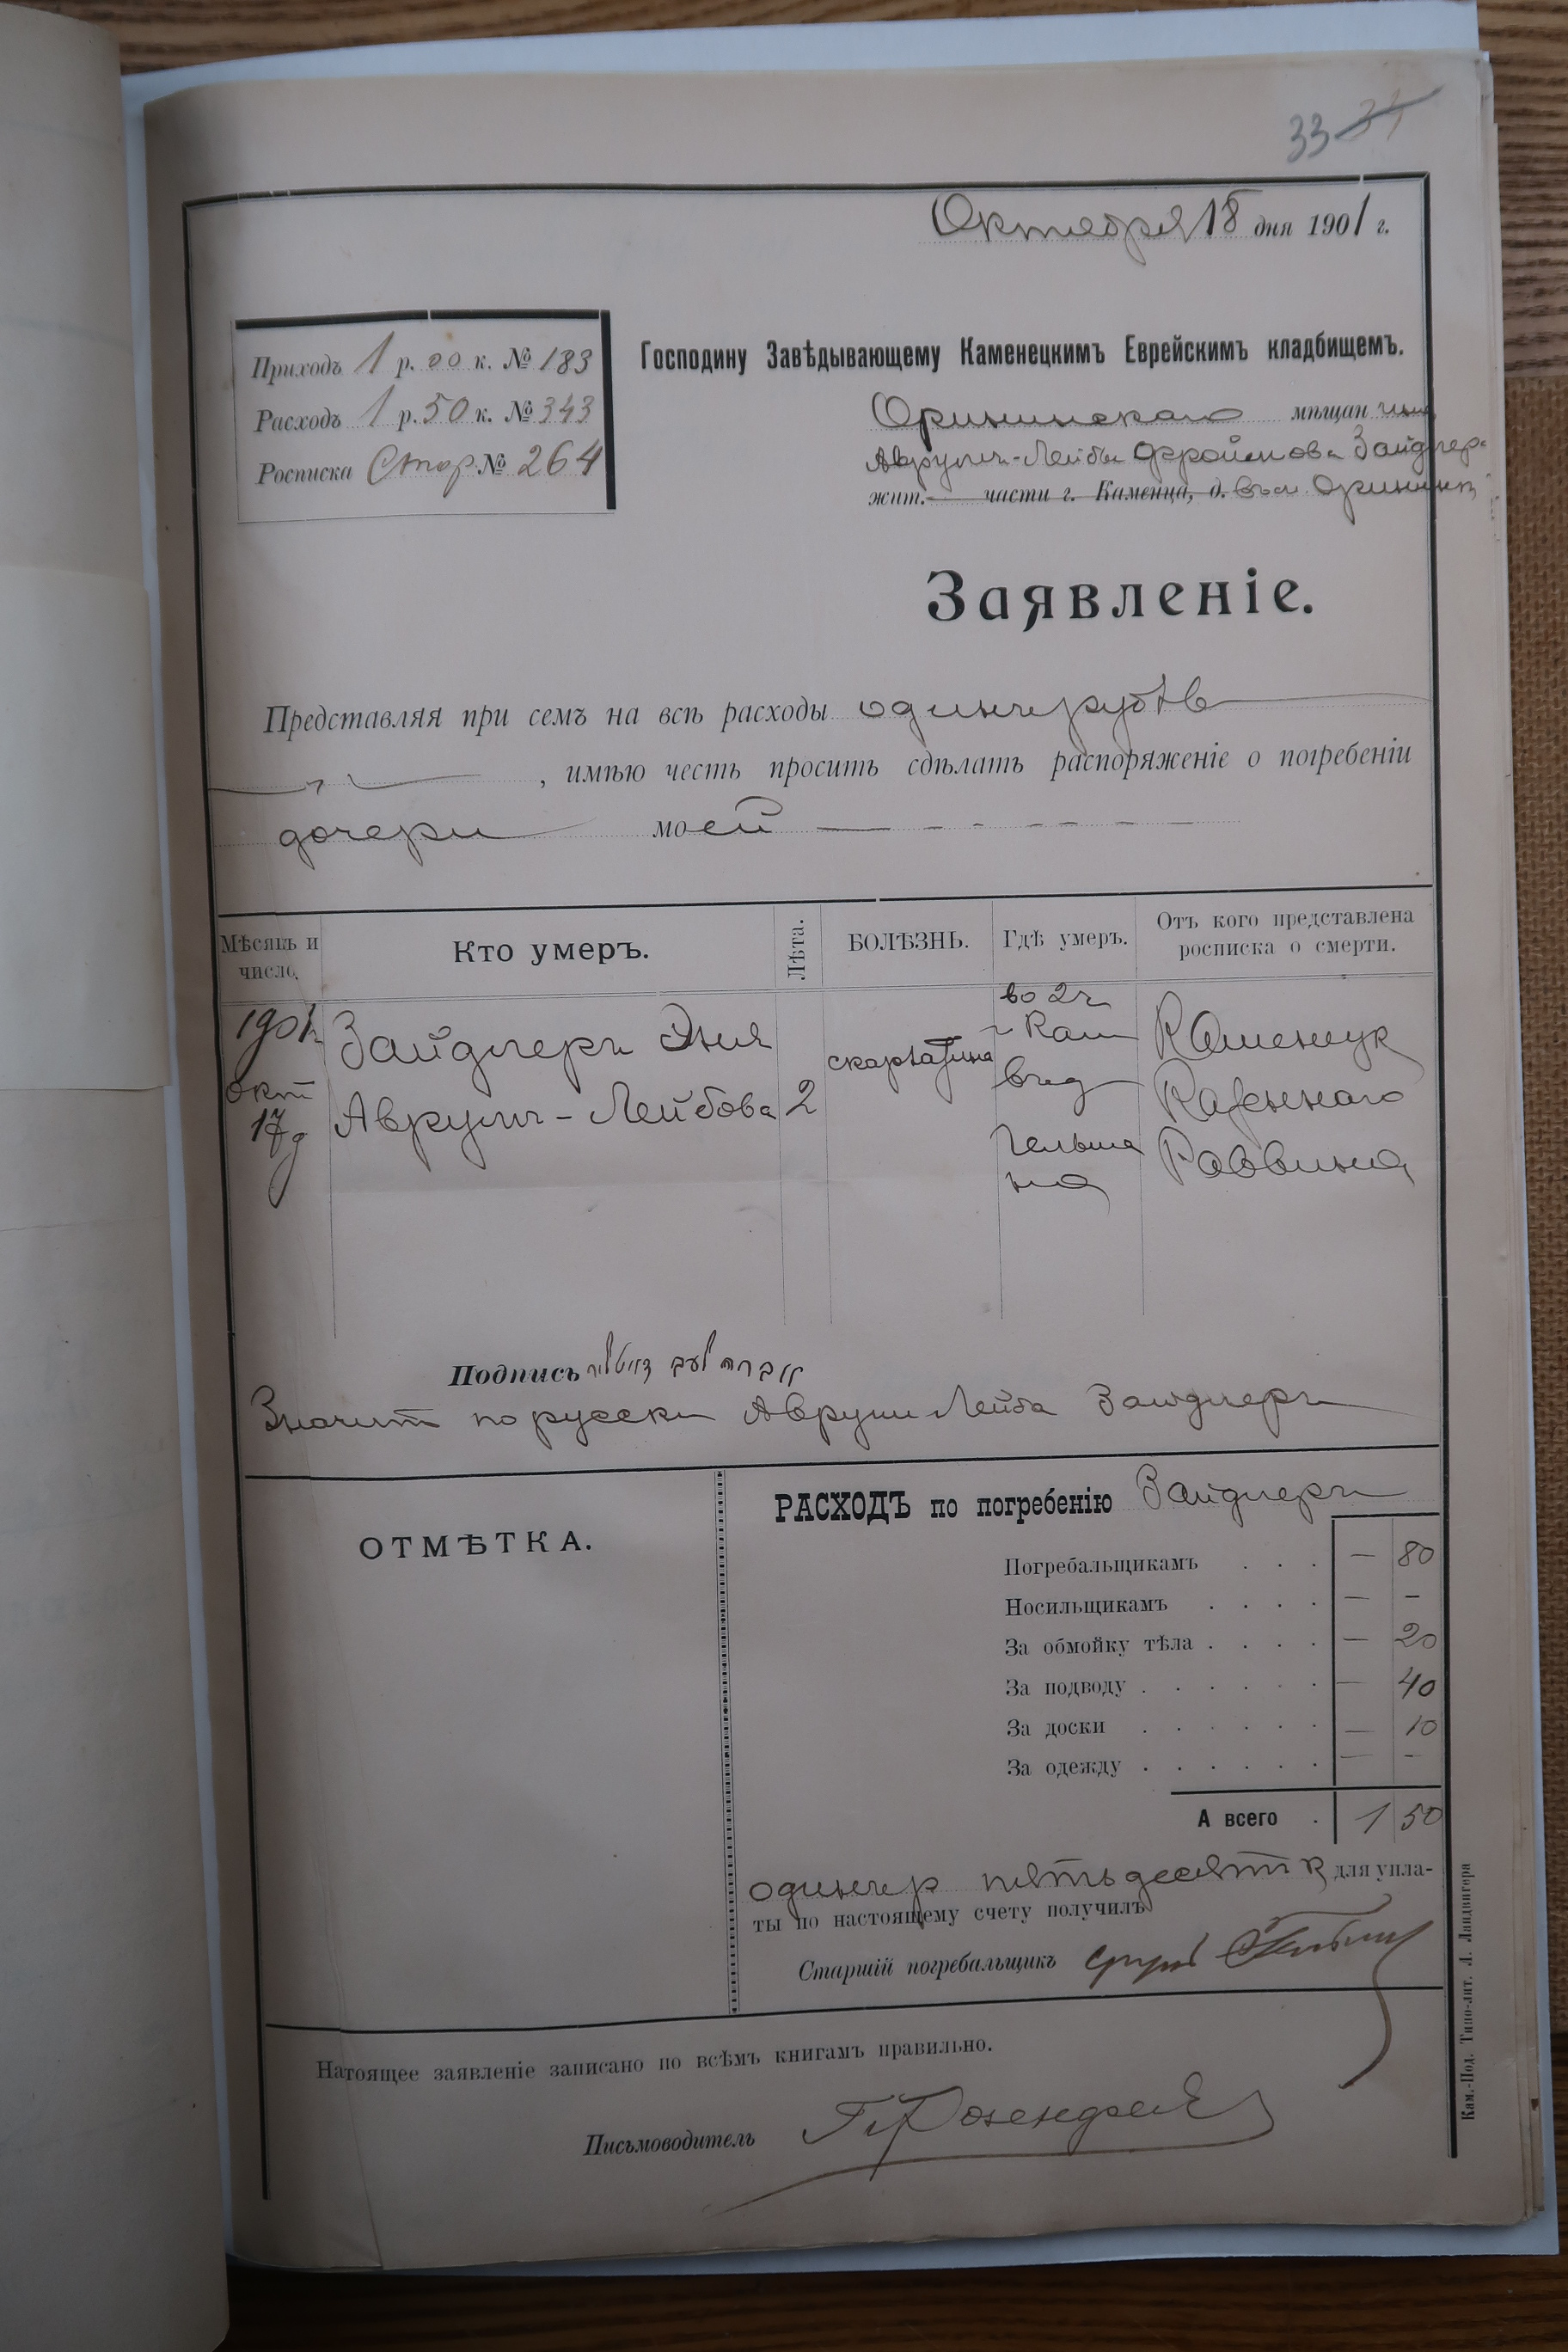 33 34
Октября 18 дня 1901 г.
Приходъ 1 р. 00 к. № 183
Расходъ 1 р. 50 к. № 343
Росписка Стор № 264
Господину Завѣдывающему Каменецкимъ Еврейскимъ кладбищемъ.
Орининскаго мѣщан ина
Аврумъ-Лейбы Фройимова Зайднера
жит. части г. Каменца, д. въ м Орининѣ
Заявленіе.
Представляя при семъ на всѣ расходы одинъ рубль
, имѣю честь просить сдѣлать распоряженіе о погребеніи
дочери моей
Мѣсяцъ и число.
Кто умеръ.
Лѣта.
БОЛѢЗНЬ.
Гдѣ умеръ.
Отъ кого представлена росписка о смерти.
1901 г
Окт
17 д
Зайднеръ Эня
Аврумъ-Лейбова
2
скарлатина
во 2 ч
г Кам
въ д
Гельма
на
Каменецк
Казеннаго
Раввина
Подпись אברהם לייב
Значит по русски Аврум Лейба Зайднеръ
ОТМѢТКА.
РАСХОДЪ по погребенію Зайднеръ
Погребальщикамъ . . . — 80
Носильщикамъ . . . . — -
За обмойку тѣла . . . . — 20
За подводу . . . . . . — 40
За доски . . . . . . — 10
За одежду . . . . . . — -
А всего . 1 50
одинъ р пятьдесят к для упла-
ты по настоящему счету получилъ
Старшій погребальщикъ
Натоящее заявленіе записано по всѣмъ книгамъ правильно.
Письмоводитель Розенфел
Кам.-Под. Типо-лит. Л. Ландвигера